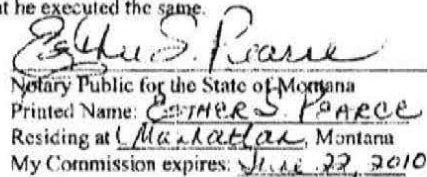 at he executed the same.
Esther S. Pearce
Notary Public for the State of Montana
Printed Name: ESTHER S. PEARCE
Residing at Manhattan, Montana
My Commission expires: June 22, 2010